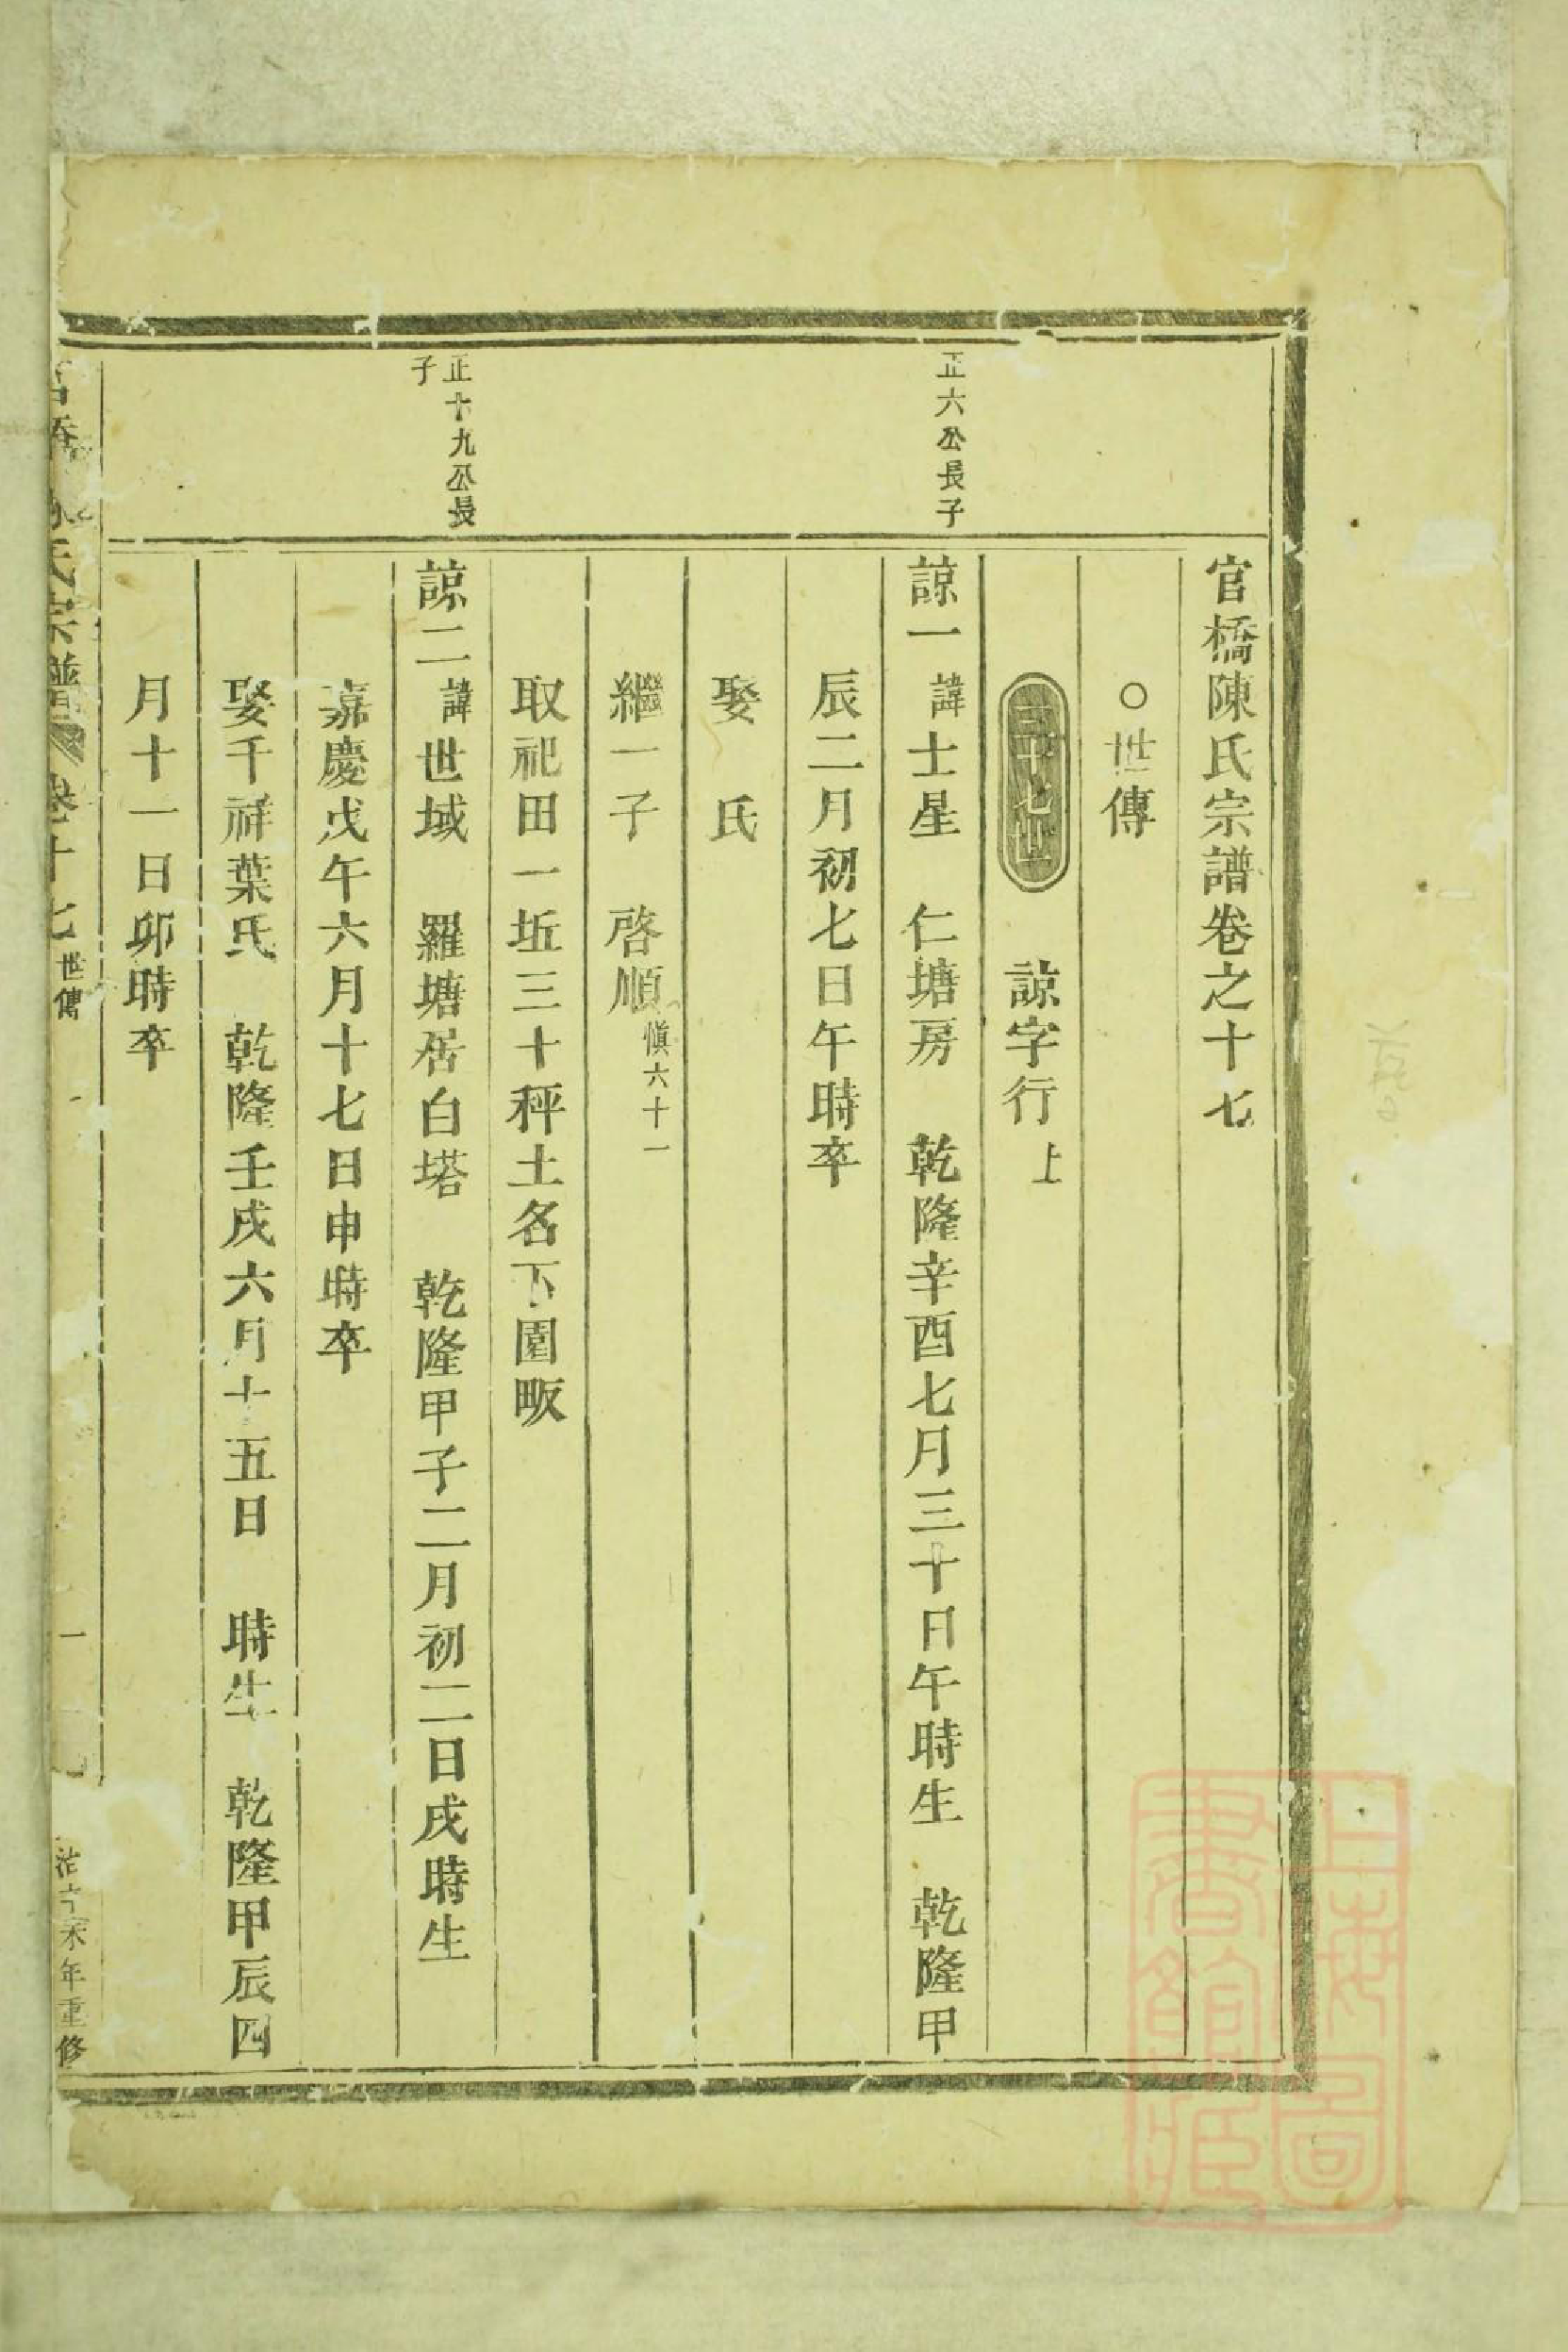 官橋陳氏宗譜卷之十七
○世傳
三十七世 諒字行上
正六公長子
諒一 諱士星 仁塘房 乾隆辛酉七月三十日午時生 乾隆甲
辰二月初七日午時卒
娶 氏
繼一子 啓順 愼六十一
取祀田一坵三十秤土名下園畈
正十九公長
子
諒二 諱世域 羅塘居白塔 乾隆甲子二月初二日戌時生
嘉慶戊午六月十七日申時卒
娶千祥葉氏 乾隆壬戌六月十五日 時生 乾隆甲辰四
月十一日卯時卒
氏宗譜 卷十七 世傳 一 年重修
上海圖
書館藏